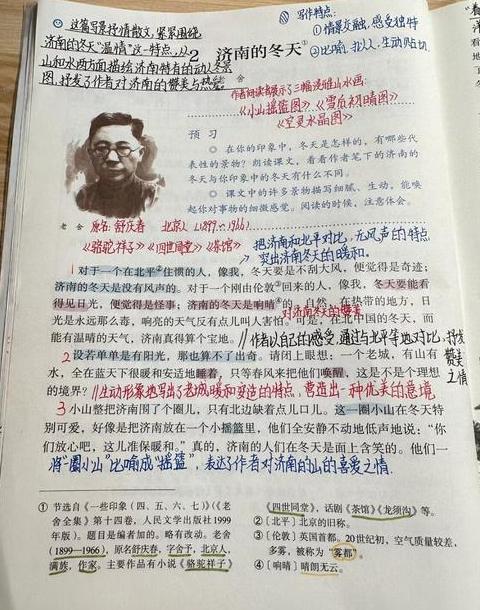 这篇写景抒情散文,紧紧围绕
济南的冬天"温情"这一特点,从
山和水两方面描绘济南特有的动人冬景
图,抒发了作者对济南的赞美与热爱
写作特点:
①情景交融,感受独特
②比喻、拟人,生动贴切
2 济南的冬天①
老 舍
作者向读者展示了三幅淡雅山水画:
《小山摇篮图》《雪后初晴图》
《空灵水晶图》
预 习
◎ 在你的印象中,冬天是怎样的,有哪些代
表性的景物?朗读课文,看看作者笔下的济南的
冬天与你印象中的冬天有什么不同。
◎ 课文中的许多景物描写细腻、生动,能唤
起你对事物的细微感受。阅读的时候,注意体会。
老 舍 原名:舒庆春 北京人(1899-1966)
《骆驼祥子》《四世同堂》《茶馆》
把济南和北平对比,无风声的特点
突出济南冬天的暖和。
1 对于一个在北平②住惯的人,像我,冬天要是不刮大风,便觉得是奇迹;
济南的冬天是没有风声的。对于一个刚由伦敦③回来的人,像我,冬天要能看
得见日光,便觉得是怪事;济南的冬天是响晴④的。自然,在热带的地方,日
对济南冬天的赞美
光是永远那么毒,响亮的天气反有点儿叫人害怕。可是,在北中国的冬天,而
能有温晴的天气,济南真得算个宝地。//作者以自己的感受,通过与北平等地对比,抒发
赞美
之情
2 设若单单是有阳光,那也算不了出奇。请闭上眼想:一个老城,有山有
水,全在蓝天下很暖和安适地睡着,只等春风来把他们唤醒,这是不是个理想
的境界?//生动形象地写出了老城暖和安适的特点,营造出一种优美的意境
3 小山整把济南围了个圈儿,只有北边缺着点儿口儿。这一圈小山在冬天特
别可爱,好像是把济南放在一个小摇篮里,他们全安静不动地低声地说:"你
们放心吧,这儿准保暖和。"真的,济南的人们在冬天是面上含笑的。他们一
将"圈小山"比喻成"摇篮",表达了作者对济南的山的喜爱之情.
① 节选自《一些印象(四、五、六、七)》(《老
舍全集》第十四卷,人民文学出版社1999
年版)。题目是编者加的。略有改动。老舍
(1899—1966),原名舒庆春,字舍予,北京人,
满族,作家。主要作品有小说《骆驼祥子》
《四世同堂》,话剧《茶馆》《龙须沟》等。
②〔北平〕北京的旧称。
③〔伦敦〕英国首都。20世纪初,空气质量较差,
多雾,被称为"雾都"。
④〔响晴〕晴朗无云。